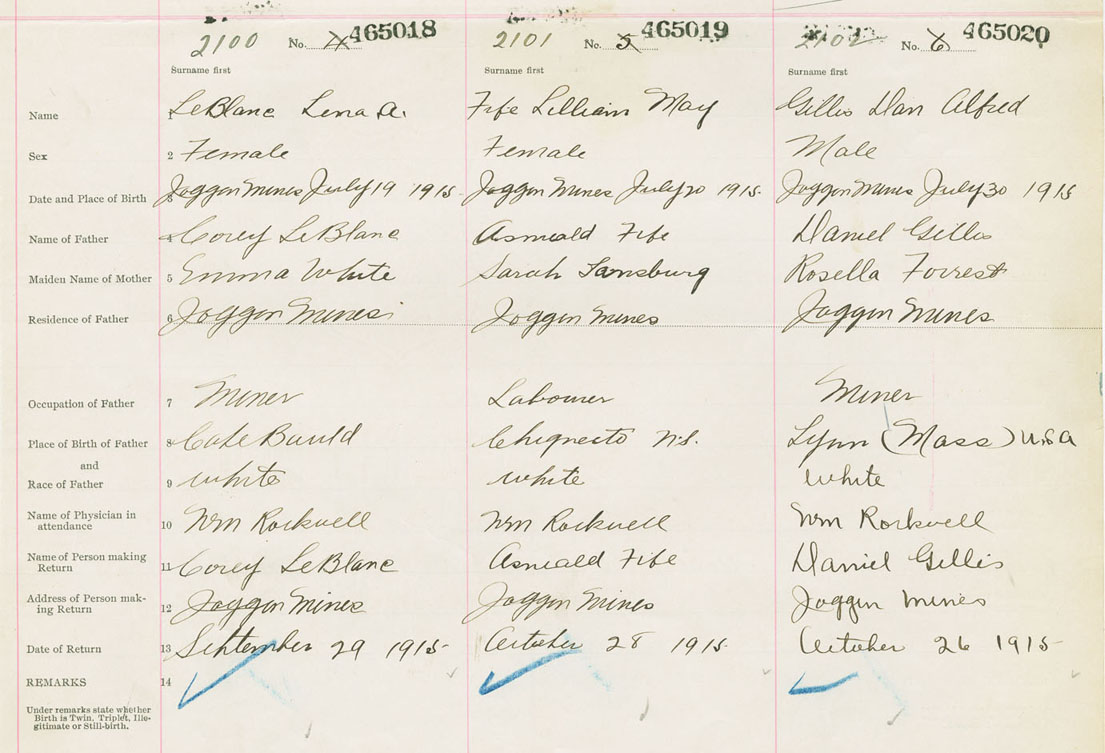 2100 No. 4 465018 2101 No. 5 465019 2102 No. 6 465020
Surname first Surname first Surname first
Name 1 LeBlanc Lena A. Fife Lilliam May Gillis Dan Alfred
Sex 2 Female Female Male
Date and Place of Birth 3 Joggin Mines July 19 1915 Joggin Mines July 20 1915 Joggin Mines July 30 1915
Name of Father 4 Corey LeBlanc Fife Daniel Gillis
Maiden Name of Mother 5 Emma White Sarah Rosella Forrest
Residence of Father 6 Joggin Mines Joggin Mines Joggin Mines
Occupation of Father 7 Miner Labourer Miner
Place of Birth of Father 8 Chignecto N.S. Lynn (Mass) U.S.A
and
Race of Father 9 White White White
Name of Physician in
attendance 10 Wm Rockwell Wm Rockwell Wm Rockwell
Name of Person making
Return 11 Corey LeBlanc Fife Daniel Gillis
Address of Person mak-
ing Return 12 Joggin Mines Joggin Mines Joggin Mines
Date of Return 13 September 29 1915 October 28 1915 October 26 1915
REMARKS 14
Under remarks state whether
Birth is Twin, Triplet, Ille-
gitimate or Still-birth.